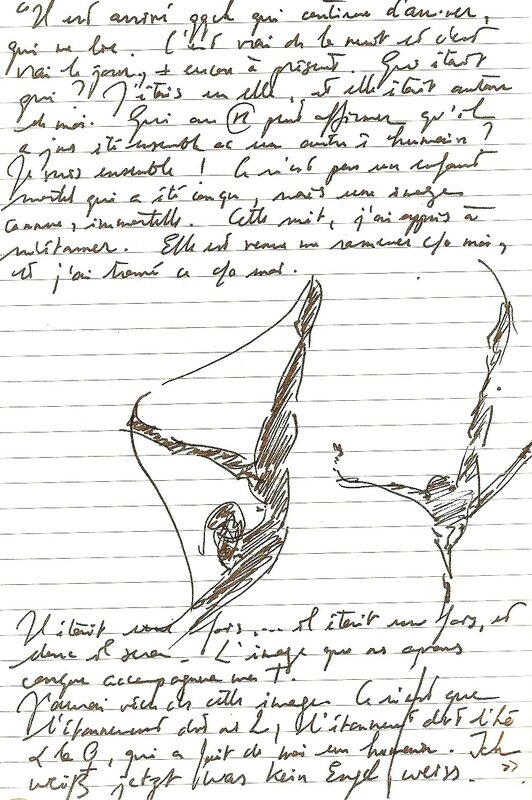 "Il est arrivé qqch qui continue d'arriver,
qui me lie. C'était vrai ds la nuit et c'est
vrai le jour, + encore à présent. Qui était
qui ? J'étais en elle, et elle était autour
de moi. Qui au peut affirmer qu'il
a jms été ensemble ac un autre ê humain ?
Je suis ensemble ! Ce n'est pas un enfant
mortel qui a été conçu, mais une image
commune, immortelle. Cette nuit, j'ai appris à
m'étonner. Elle est venue me ramener moi,
et j'ai trouvé moi.
Il était une fois... il était une fois, et
donc il sera. L'image que ns avons
conçue accompagnera ma
J'aurai vécu ds cette image. Ce n'est que
l'étonnement ns 2, l'étonnement
qui a fait de moi un humain. Ich
weiß jetzt was kein Engel weiss. "